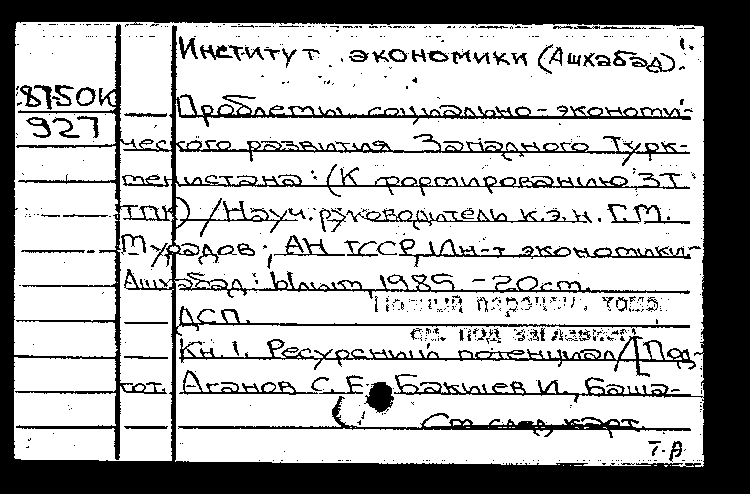 Институт экономики (Ашхабад).
8750К
927
Проблемы социально-экономи-
ческого развития Западного Турк-
менистана: (К формированию ЗТ
ТПК) / Науч. руководитель к.э.н. Г.М.
Мурадов; АН ТССР, Ин-т экономики.-
Ашхабад: Ылым, 1985 - 20см.
Полный перечень томов
ДСП.
см. под заглавием
Кн. 1. Ресурсный потенциал / [Под-
гот. Аганов С. Е., Бакиев И., Баша-
См. след. карт.
Т.Д